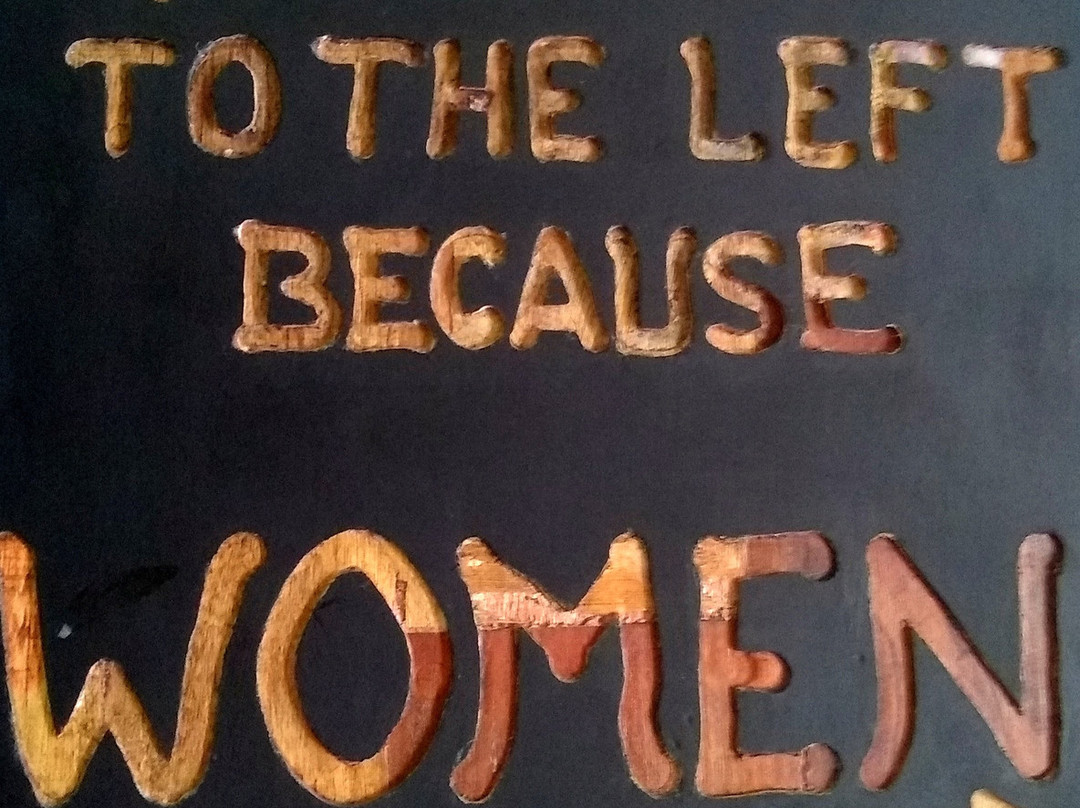 TO THE LEFT
BECAUSE
WOMEN